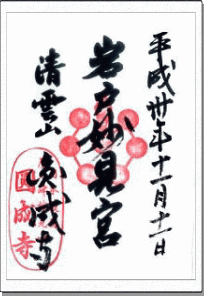 平成卅年十一月十一日
岩戸妙見宮
清雲山
圓成寺
圓成寺